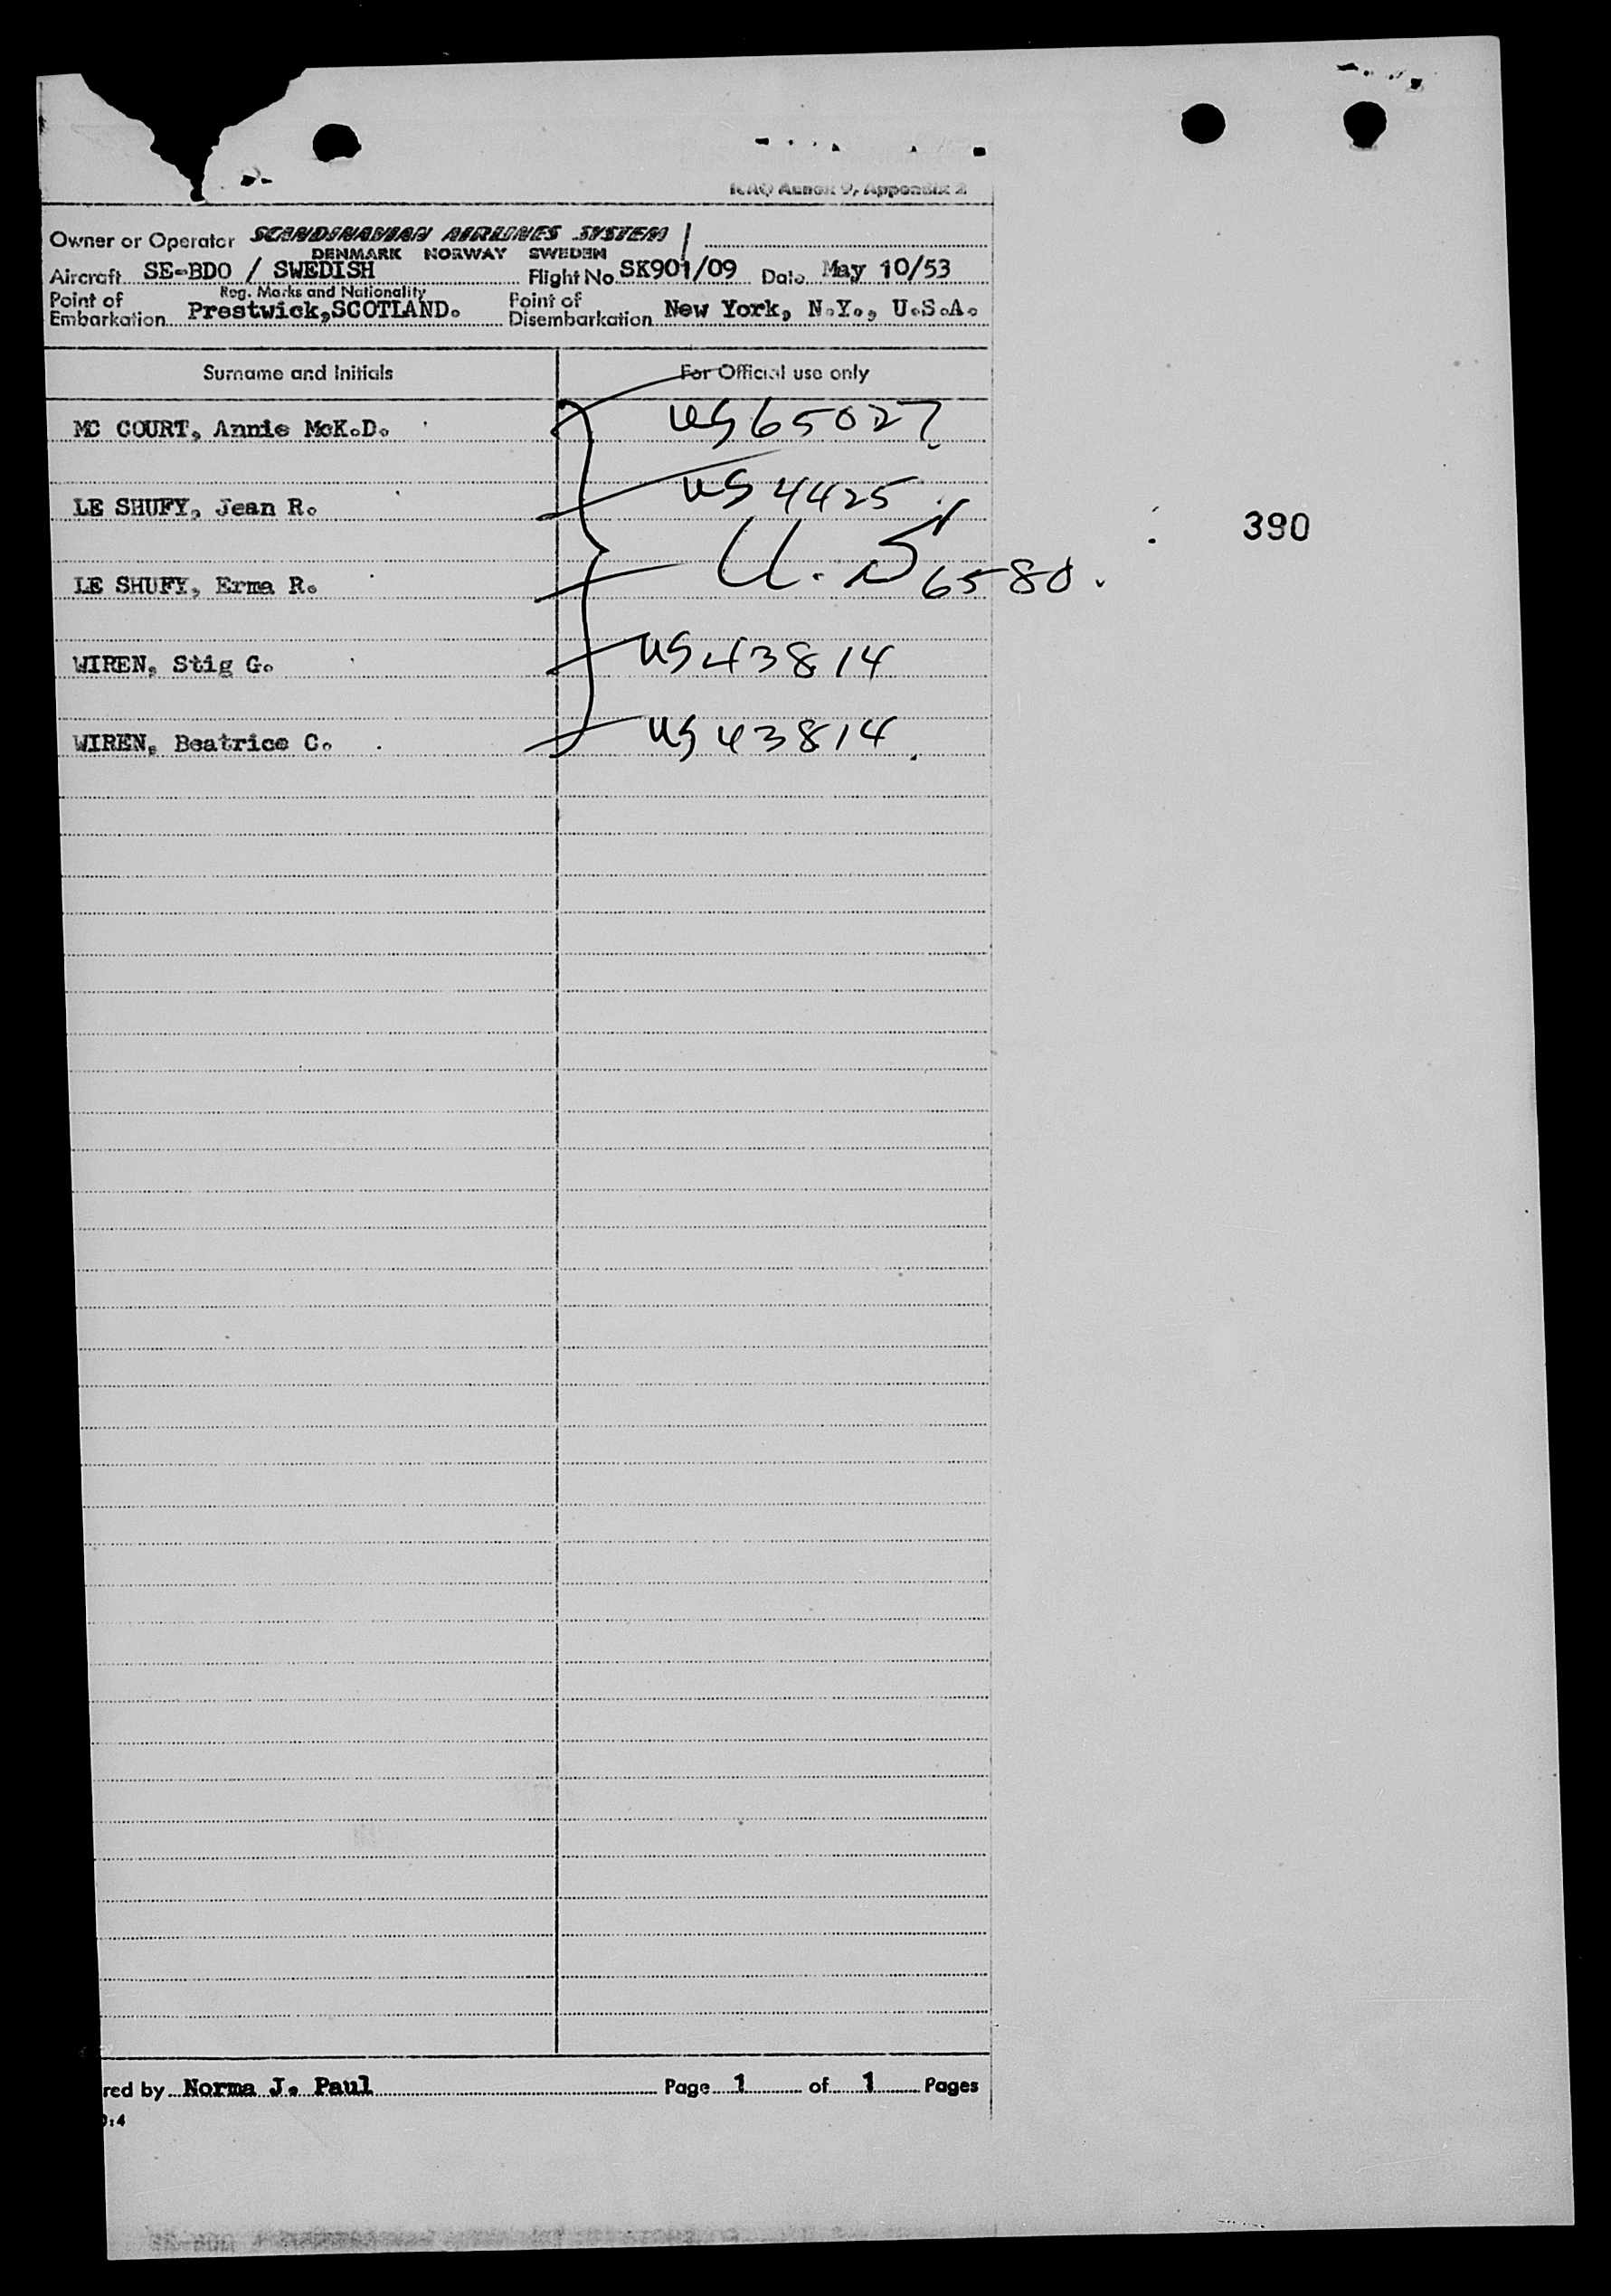 ICAO Annex 9, Appendix 2
Owner or Operator SCANDINAVIAN AIRLINES SYSTEM
DENMARK NORWAY SWEDEN
Aircraft SE-BDO / SWEDISH Flight No SK901/09 Date May 10/53
Reg. Marks and Nationality
Point of Embarkation Prestwick, SCOTLAND. Point of Disembarkation New York, N.Y., U.S.A.
Surname and Initials For Official use only
MC COURT, Annie McK.D. US 65027
LE SHUFY, Jean R. US 4425
390
LE SHUFY, Erma R. U.S 6580.
WIREN, Stig G. US 43814
WIREN, Beatrice C. US 43814
red by Norma J. Paul Page 1 of 1 Pages
:4